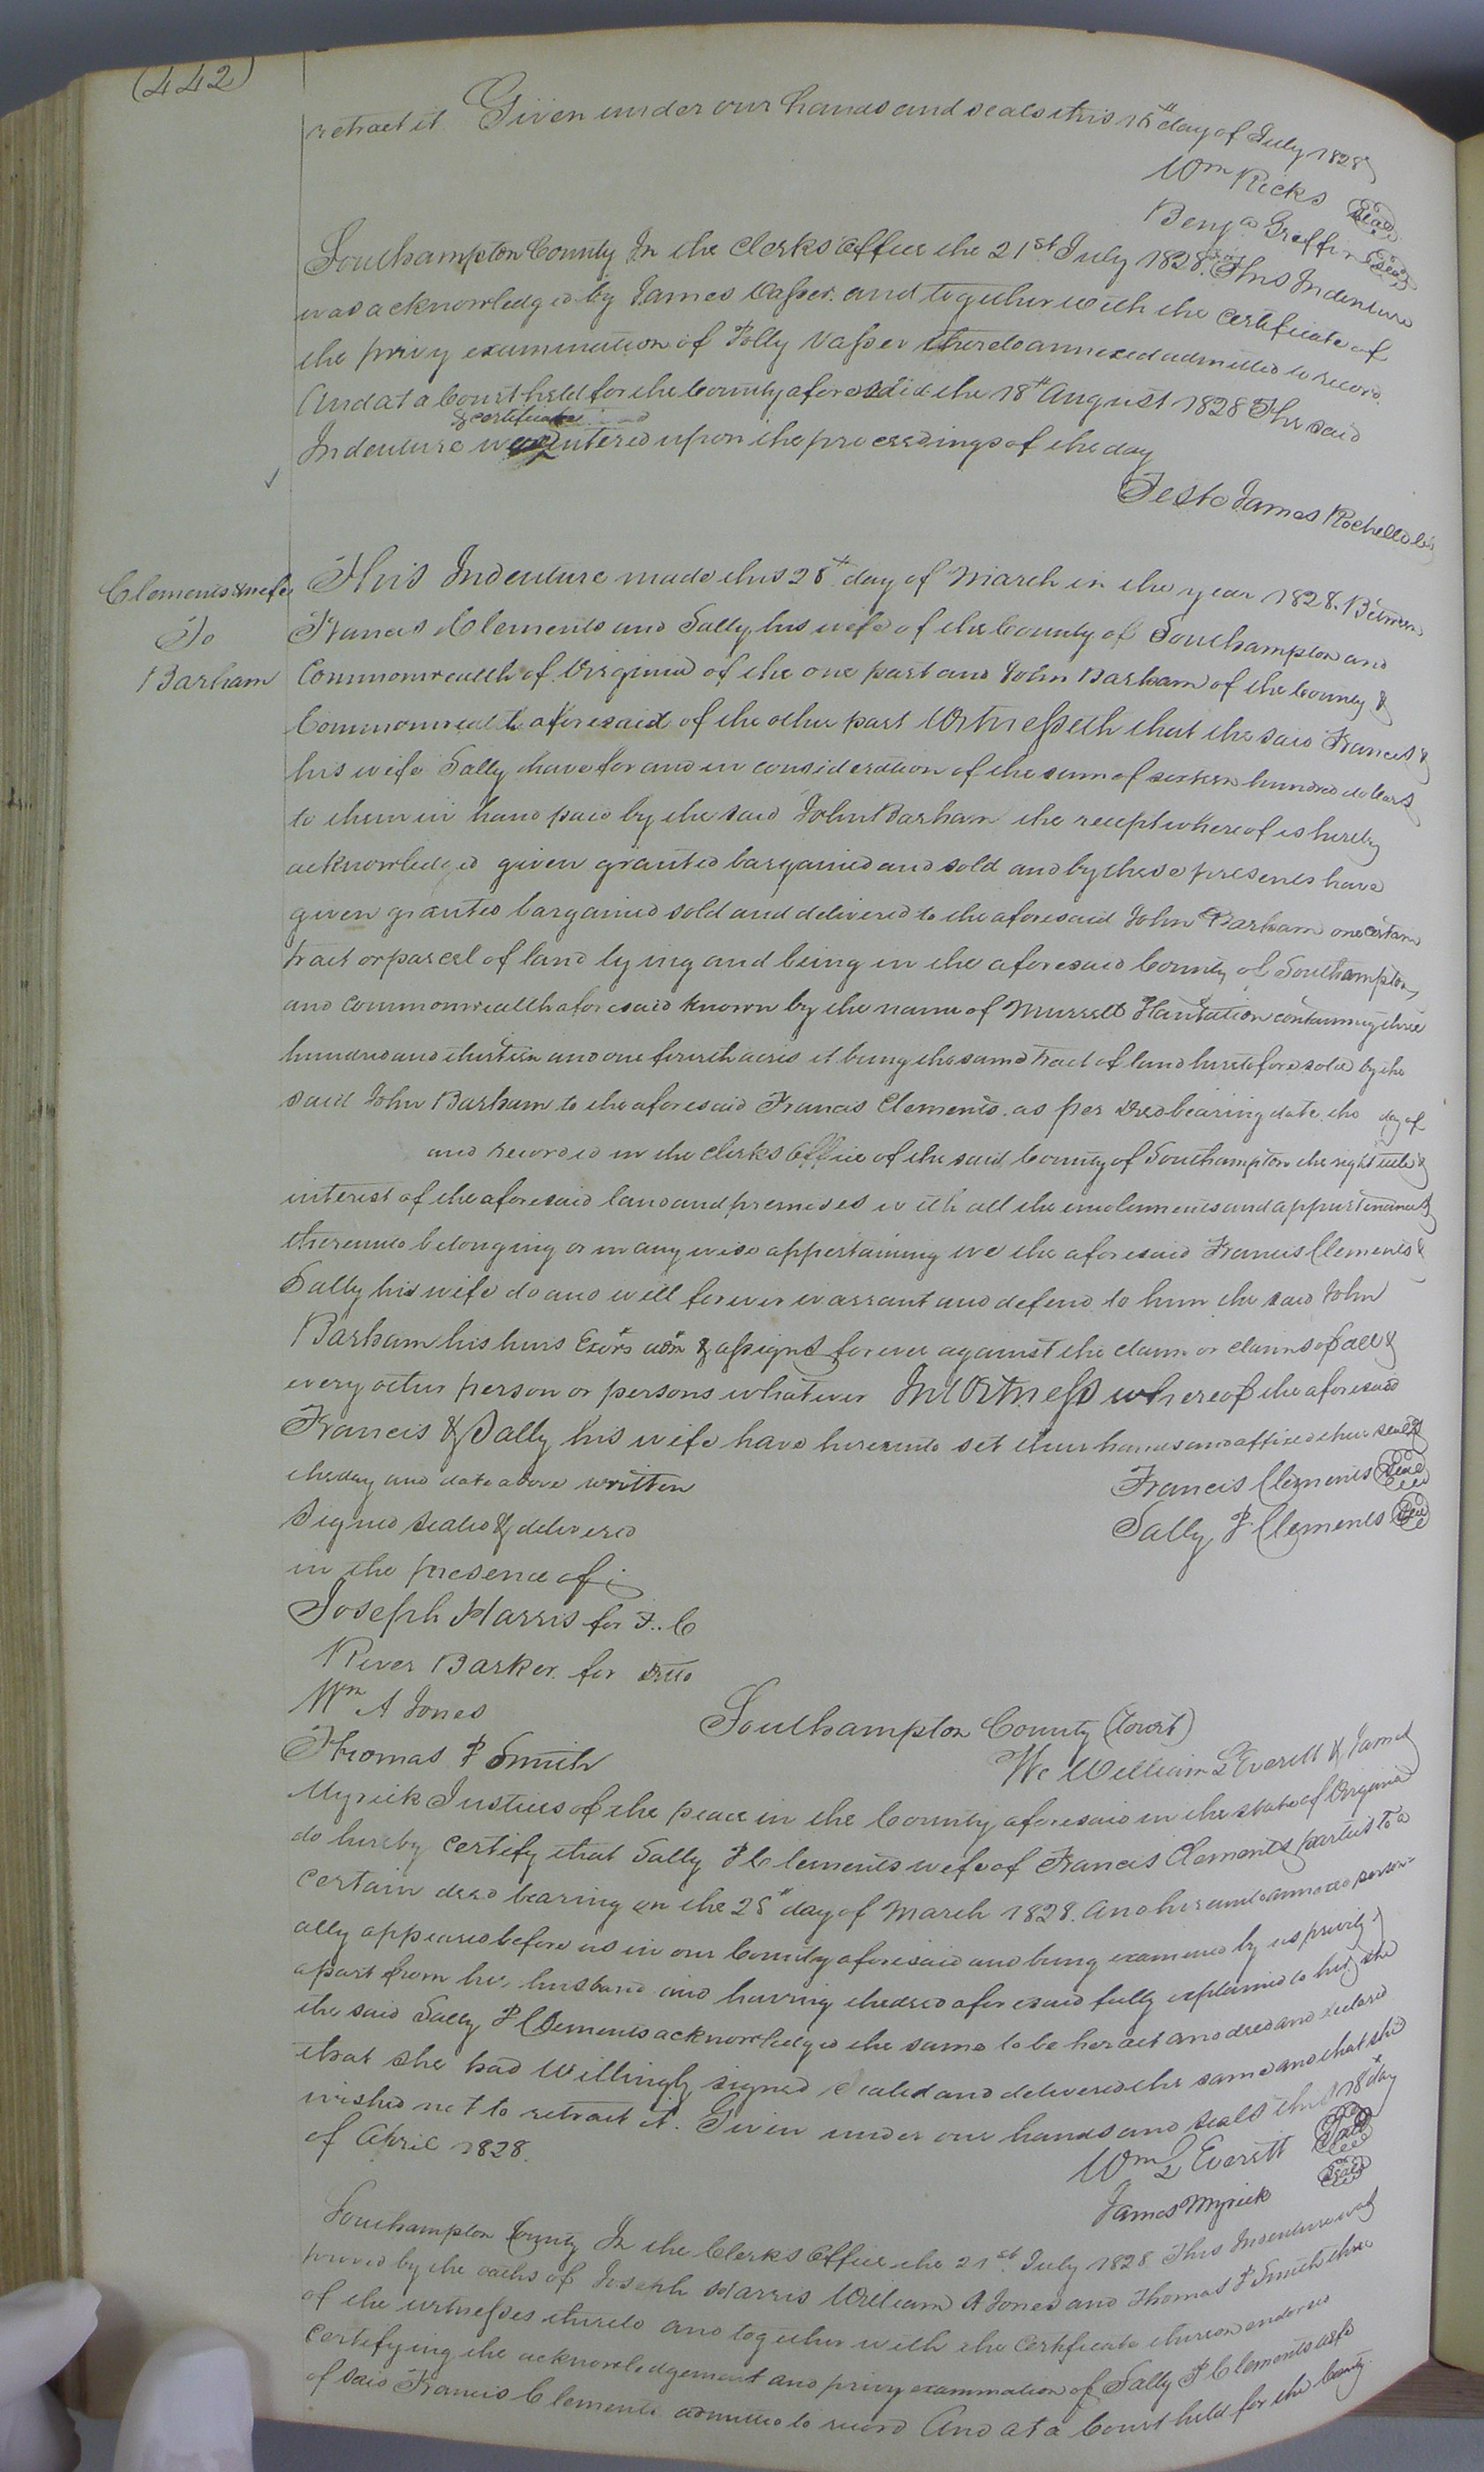 (442)
retract it Given under our hands and seals this 15th day of July 1828
Wm Ricks Seal
Benja Griffin Seal
Southampton County In the Clerks Office the 21st July 1828 This Indenture
was acknowledged by James Vasser and together with the certificate of
the privy examination of Polly Vasser thereto annexed admitted to record.
And at a Court held for the County aforesaid the 18th August 1828 The said
& certificate
Indenture entered upon the proceedings of the day
Teste James Rochelle
Clements & wife
To
Barham
This Indenture made this 28th day of March in the year 1828. Between
Francis Clements and Sally his wife of the County of Southampton and
Commonwealth of Virginia of the one part and John Barham of the County &
Commonwealth aforesaid of the other part Witnesseth that the said Francis &
his wife Sally have for and in consideration of the sum of sixteen hundred dollars
to them in hand paid by the said John Barham the receipt whereof is hereby
acknowledged given granted bargained and sold and by these presents have
given granted bargained sold and delivered to the aforesaid John Barham one certain
tract or parcel of land lying and being in the aforesaid County of Southampton,
and commonwealth aforesaid known by the name of Murrell Plantation containing three
hundred and thirteen and one fourth acres it being the same tract of land heretofore sold by the
said John Barham to the aforesaid Francis Clements as per deed bearing date the day of
and recorded in the clerks Office of the said County of Southampton the right title &
interest of the aforesaid land and premises with all the emoluments and appurtenances
thereunto belonging or in any wise appertaining we the aforesaid Francis Clements &
Sally his wife do and will forever warrant and defend to him the said John
Barham his heirs Exors adm & assigns forever against the claim or claims of all &
every other person or persons whatever In Witness whereof the aforesaid
Francis & Sally his wife have hereunto set their hands and affixed their seals
the day and date above written
Francis Clements Seal
Signed sealed & delivered
Sally P Clements Seal
in the presence of
Joseph Harris for F. C
River Barker for ditto
Wm A Jones
Thomas P Smith
Southampton County (Court)
We William L Everett & James
Myrick Justices of the peace in the County aforesaid in the state of Virginia
do hereby certify that Sally P Clements wife of Francis Clements parties to a
certain deed bearing on the 28th day of March 1828. and hereunto annexed person-
ally appeared before us in our County aforesaid and being examined by us privily &
apart from her husband and having the deed aforesaid fully explained to her, she
the said Sally P Clements acknowledged the same to be her act and deed and declared
that she had willingly signed sealed and delivered the same and that she
wished not to retract it. Given under our hands and seals this 18th day
of April 1828.
Wm L Everett Seal
James Myrick Seal
Southampton County In the Clerks Office the 21st July 1828 This Indenture was
proved by the oaths of Joseph Harris William A Jones and Thomas P Smith three
of the witnesses thereto and together with the certificate thereon endorsed
certifying the acknowledgement and privy examination of Sally P Clements wife
of said Francis Clements admitted to record And at a Court held for the County